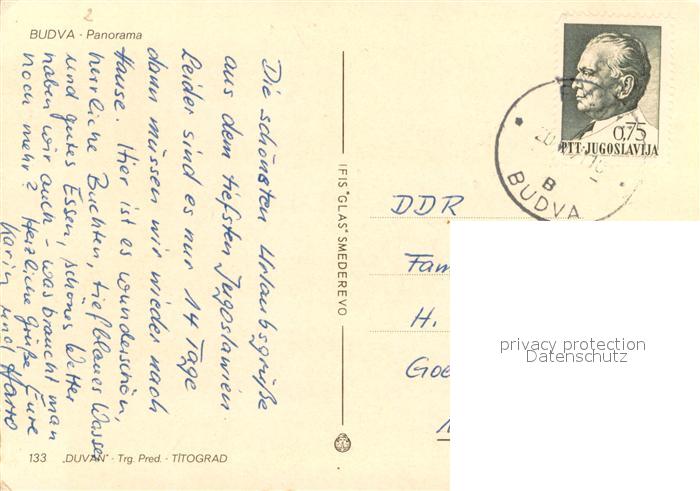 BUDVA · Panorama
2
Die schönsten Urlaubsgrüße
aus dem tiefsten Jugoslawien.
Leider sind es nur 14 Tage
dann müssen wir wieder nach
Hause. Hier ist es wunderschön,
herrliche Buchten, tiefblaues Wasser
und gutes Essen, schönes Wetter
haben wir auch – was braucht man
noch mehr? Herzliche Grüße Eure
Karin und
133 „DUVAN" · Trg. Pred. · TITOGRAD
IFIS "GLAS" SMEDEREVO
0,75
PTT·JUGOSLAVIJA
B
BUDVA
DDR
Fam
H.
Goe
privacy protection
Datenschutz